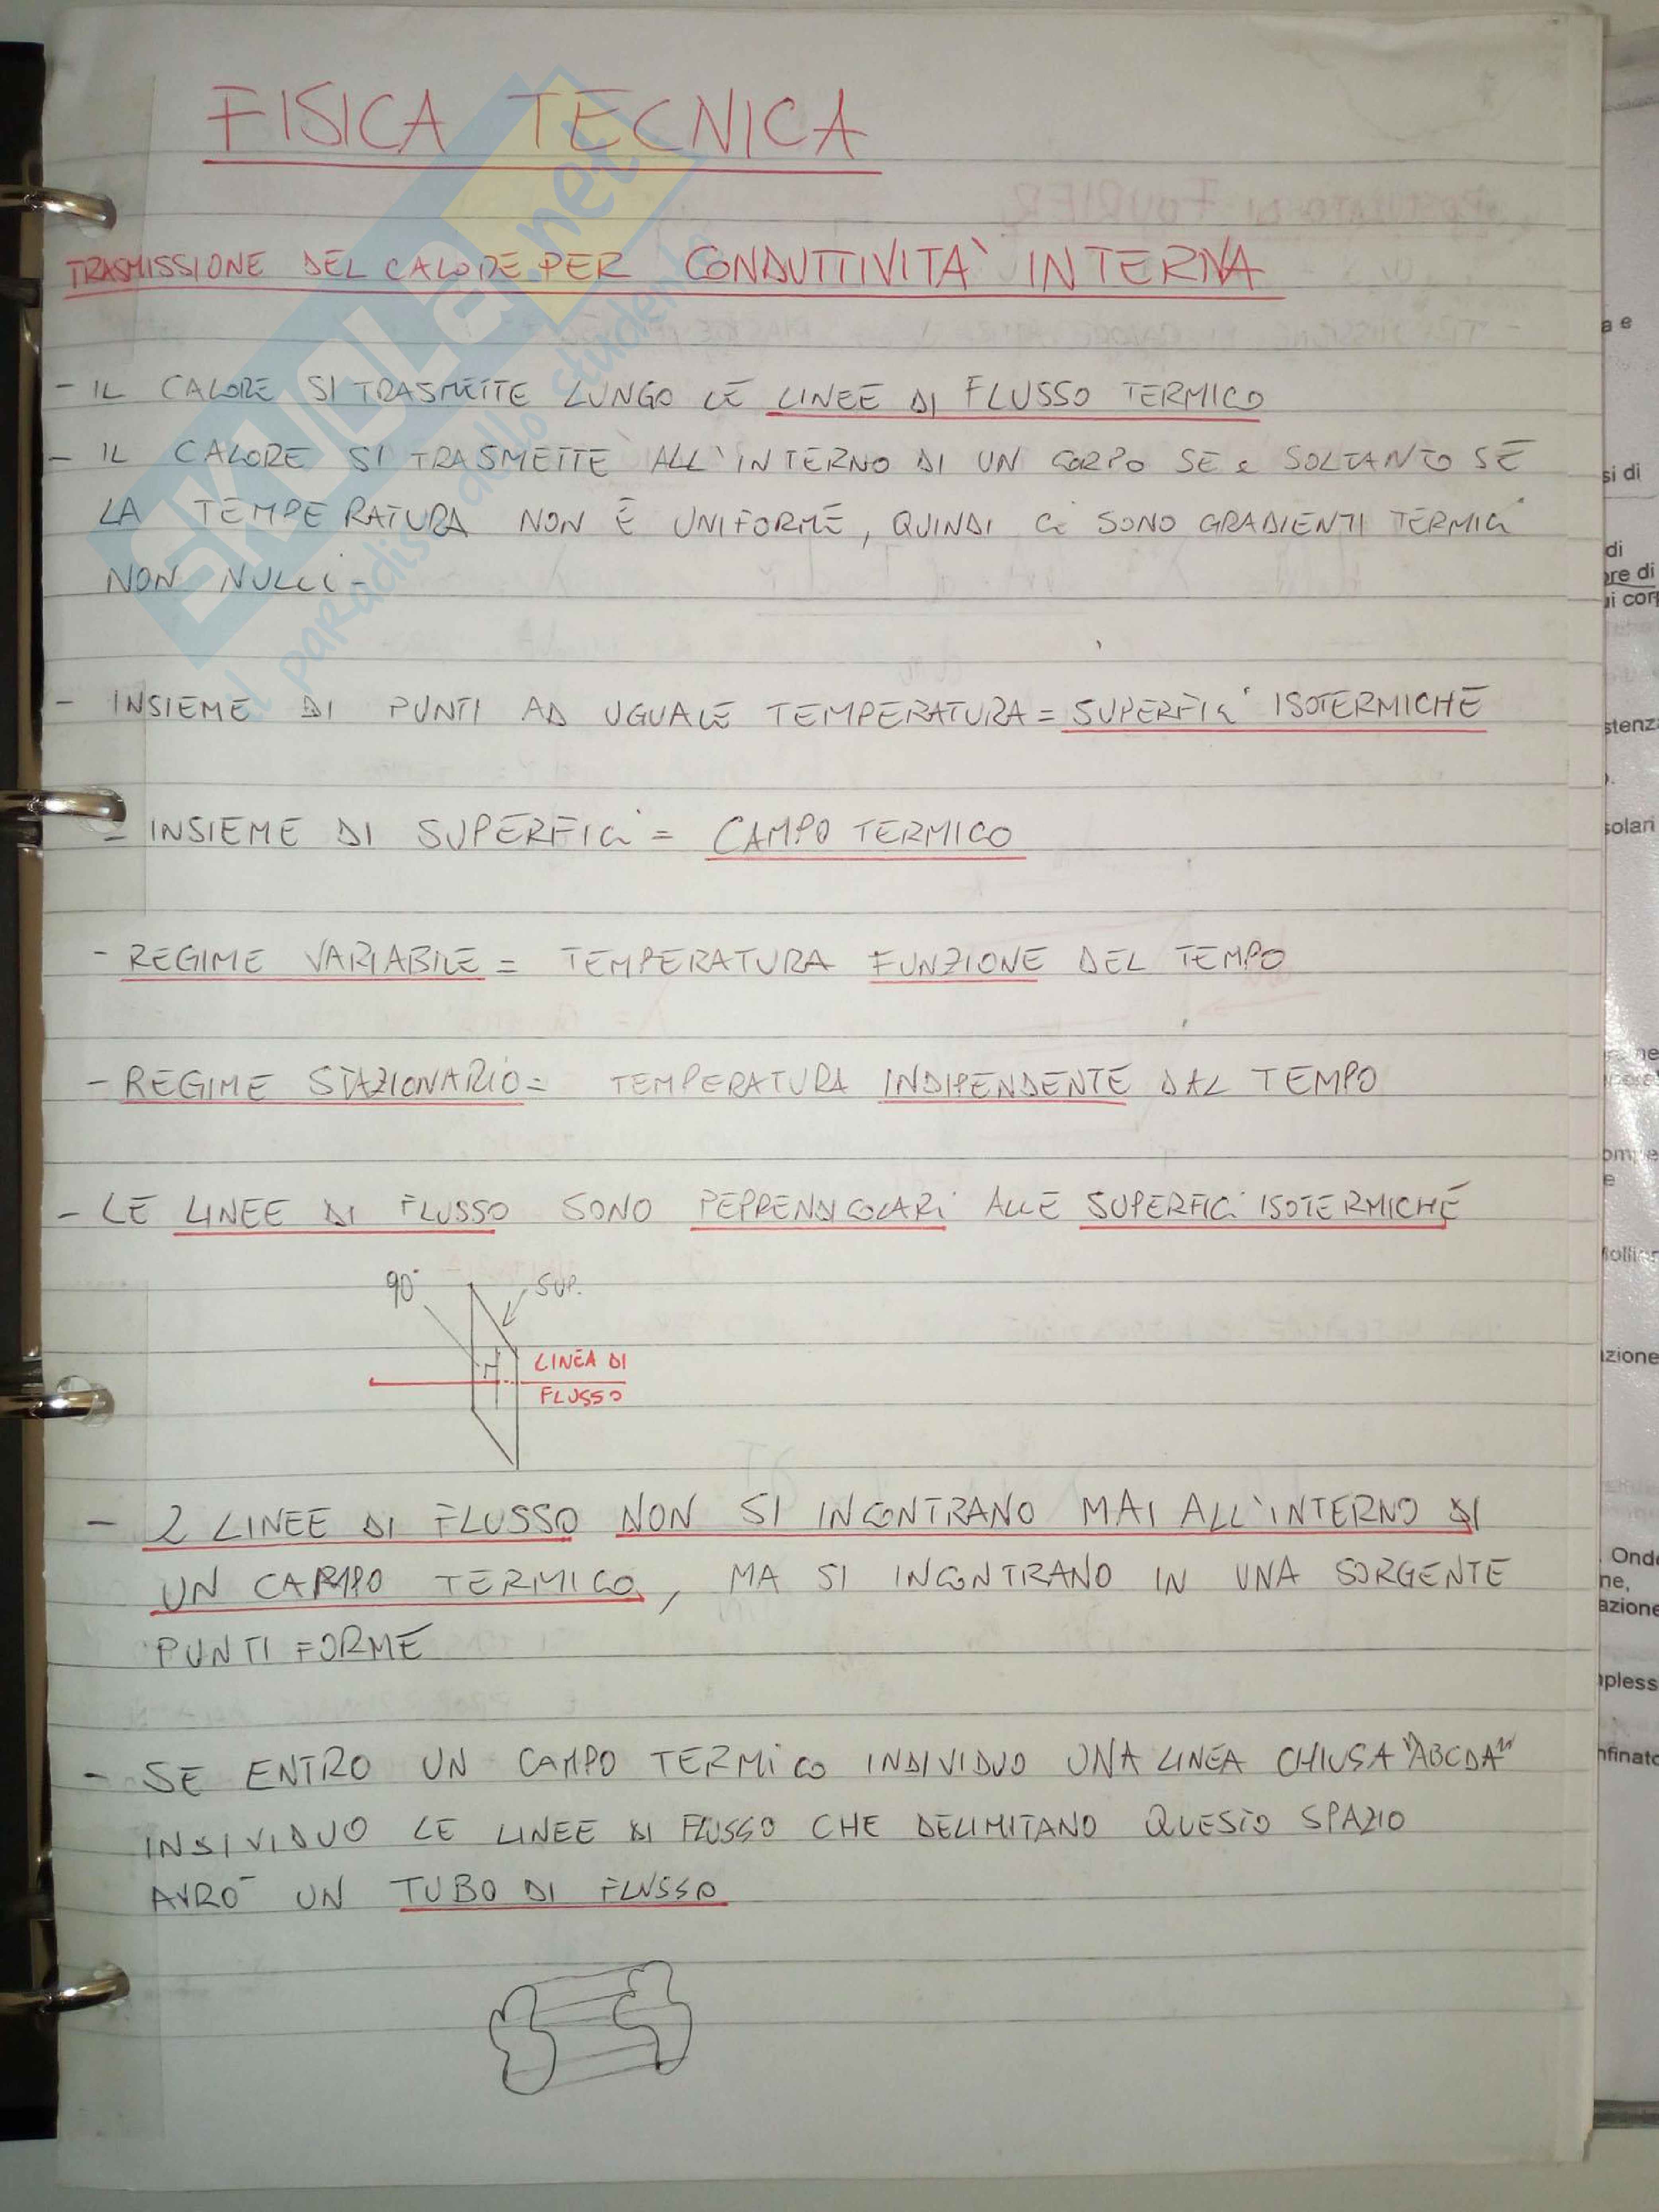 FISICA TECNICA
TRASMISSIONE DEL CALORE PER CONDUTTIVITA' INTERNA
- IL CALORE SI TRASMETTE LUNGO LE LINEE DI FLUSSO TERMICO
- IL CALORE SI TRASMETTE ALL'INTERNO DI UN CORPO SE e SOLTANTO SE
LA TEMPERATURA NON È UNIFORME, QUINDI Ci SONO GRADIENTI TERMICi
NON NULLi -
- INSIEME DI PUNTI AD UGUALE TEMPERATURA = SUPERFICi ISOTERMICHE
- INSIEME DI SUPERFICi = CAMPO TERMICO
- REGIME VARIABILE = TEMPERATURA FUNZIONE DEL TEMPO
- REGIME STAZIONARIO = TEMPERATURA INDIPENDENTE DAL TEMPO
- LE LINEE DI FLUSSO SONO PEPPENDICOLARi ALLE SUPERFICi ISOTERMICHE
90°
SUP.
LINEA DI
FLUSSO
- 2 LINEE DI FLUSSO NON SI INCONTRANO MAI ALL'INTERNO DI
UN CAMPO TERMICO, MA SI INCONTRANO IN UNA SORGENTE
PUNTIFORME
- SE ENTRO UN CAMPO TERMiCO INDIVIDUO UNA LINEA CHIUSA "ABCDA"
INDIVIDUO LE LINEE DI FLUSSO CHE DELIMITANO QUESTO SPAZIO
AVRO' UN TUBO DI FLUSSO
SKUOLA.net
il paradiso dello studente
a e
si di
di
ore di
ui corp
stenza
solari
zione
Onde
ne,
azione
pless
nfinato